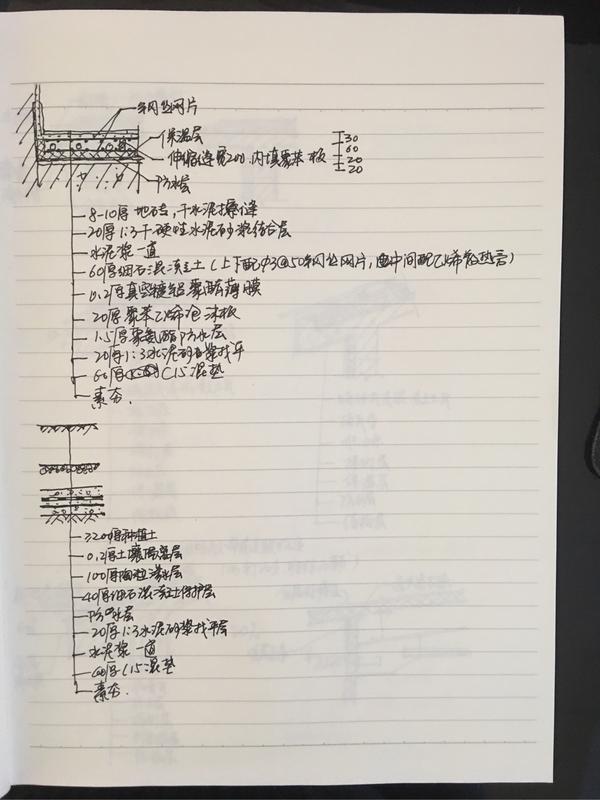 钢丝网片
保温层
伸缩缝宽200,内填聚苯板
防水层
30
60
20
20
8-10厚地砖,干水泥擦缝
20厚1:3干硬性水泥砂浆结合层
水泥浆一道
60厚细石混凝土(上下配Φ3@50钢丝网片,中间配乙烯散热管)
0.2厚真空镀铝聚酯薄膜
20厚聚苯乙烯泡沫板
1.5厚聚氨酯防水层
20厚1:3水泥砂浆找平
60厚C15混垫
素夯.
320厚种植土
0.2厚土壤隔离层
100厚陶粒滤水层
40厚细石混凝土保护层
防水层
20厚1:3水泥砂浆找平层
水泥浆一道
60厚C15混垫
素夯.